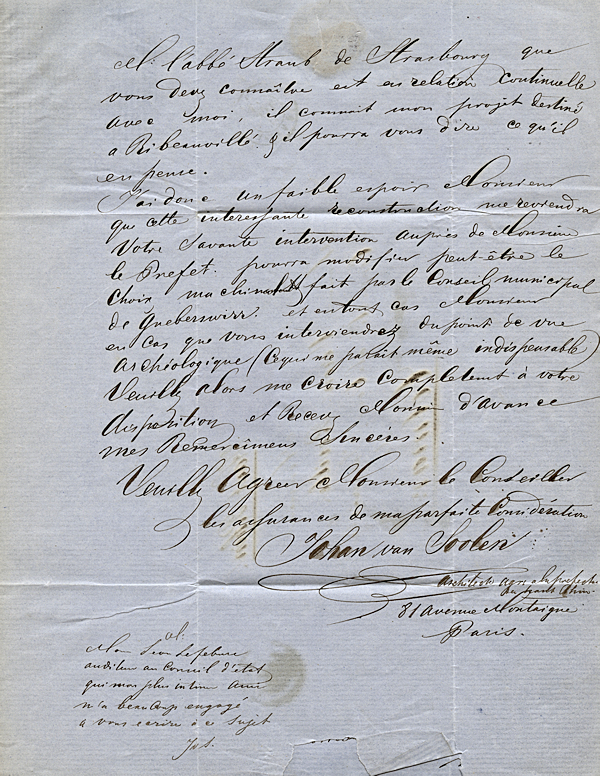 Mr l'abbé Straub de Strasbourg que
vous devez connaître est en relation continuelle
avec moi, il connait mon projet destiné
a Ribeauvillé & il pourra vous dire ce qu'il
en pense.
J'ai donc un faible espoir Monsieur
que cette interessante reconstruction me reviendra
Votre Savante intervention auprès de Monsieur
le Prefet pourra modifier peut-être le
Choix fait par le Conseil municipal
de Gueberswirr. et en tout cas Monsieur
en Cas que vous interviendrez du point de vue
archéologique (Ce qui me parait même indispensable)
Veuillez alors me croire completent à votre
disposition et Recevez Monsieur d'avance
mes Remercimens Sincères.
Veuillez Agreer Monsieur le Conseiller
les assurances de ma parfaite Considération
Johan van
architecte agréé à la préfect.
du haut Rhin.
81 avenue Montaigne
Paris.
Mon Léon Lefebure
auditeur au Conseil d'état
qui mon plus intime Ami
m'a beaucoup engagé
a vous ecrire à ce Sujet